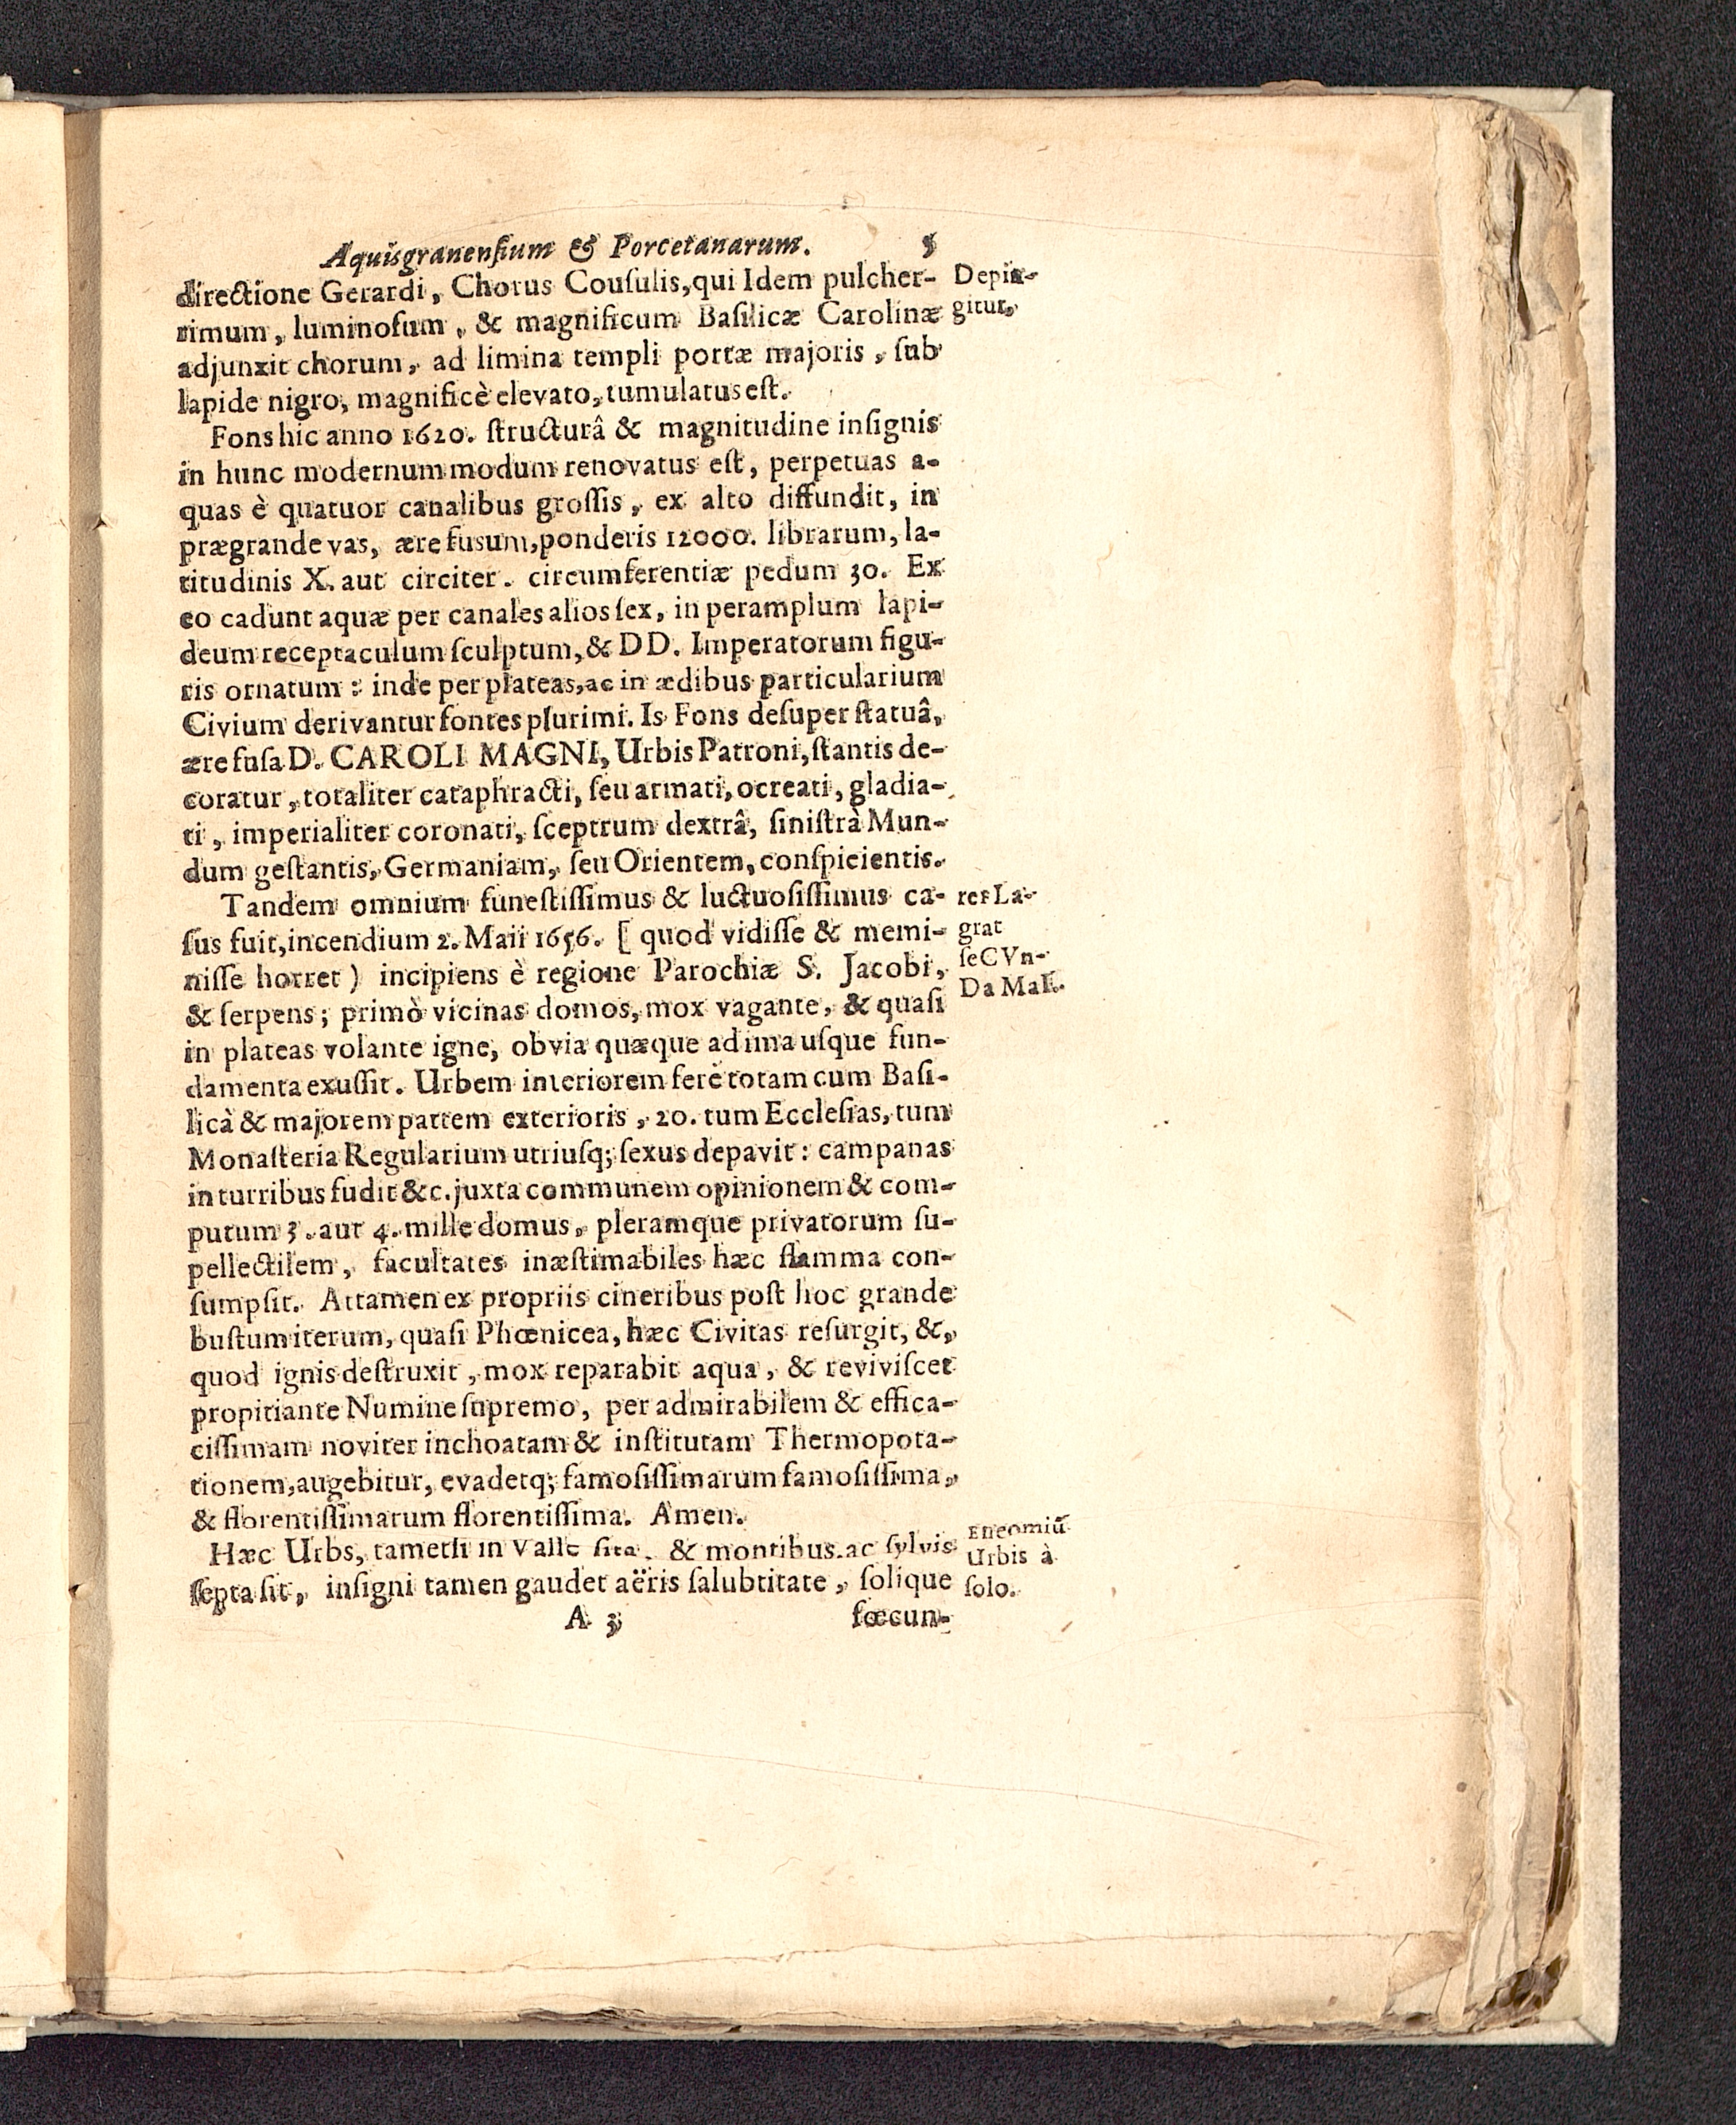 Aquisgranensium & Porcetanarum. 5
directione Gerardi, Chorus Cousulis, qui Idem pulcher-
rimum, luminosum, & magnificum Basilicæ Carolinæ
adjunxit chorum, ad limina templi portæ majoris, sub
lapide nigro, magnificè elevato, tumulatus est.
Depin-
gitur.
Fons hic anno 1620. structurâ & magnitudine insignis
in hunc modernum modum renovatus est, perpetuas a-
quas è quatuor canalibus grossis, ex alto diffundit, in
prægrande vas, ære fusum, ponderis 12000. librarum, la-
titudinis X. aut circiter. circumferentiæ pedum 30. Ex
eo cadunt aquæ per canales alios sex, in peramplum lapi-
deum receptaculum sculptum, & DD. Imperatorum figu-
ris ornatum: inde per plateas, ac in ædibus particularium
Civium derivantur fontes plurimi. Is Fons desuper statuâ,
ære fusa D. CAROLI MAGNI, Urbis Patroni, stantis de-
coratur, totaliter cataphracti, seu armati, ocreati, gladia-
ti, imperialiter coronati, sceptrum dextrâ, sinistrà Mun-
dum gestantis, Germaniam, seu Orientem, conspicientis.
Tandem omnium funestissimus & luctuosissimus ca-
sus fuit, incendium 2. Maii 1656. [ quod vidisse & memi-
nisse horret ) incipiens è regione Parochiæ S. Jacobi,
& serpens; primò vicinas domos, mox vagante, & quasi
in plateas volante igne, obvia quæque ad ima usque fun-
damenta exussit. Urbem interiorem ferè totam cum Basi-
licà & majorem partem exterioris, 20. tum Ecclesias, tum
Monasteria Regularium utriusq; sexus depavit: campanas
in turribus fudit &c. juxta communem opinionem & com-
putum 3. aut 4. mille domus, pleramque privatorum su-
pellectilem, facultates inæstimabiles hæc flamma con-
sumpsit. Attamen ex propriis cineribus post hoc grande
bustum iterum, quasi Phœnicea, hæc Civitas resurgit, &,
quod ignis destruxit, mox reparabit aqua, & reviviscet
propitiante Numine supremo, per admirabilem & effica-
cissimam noviter inchoatam & institutam Thermopota-
tionem, augebitur, evadetq; famosissimarum famosissima,
& florentissimarum florentissima. Amen.
grat
seCVn-
Da MaI.
Hæc Urbs, tametsi in Valle sita, & montibus ac sylvis
septa sit, insigni tamen gaudet aëris salubtitate, solique
Encomiū
Urbis à
solo.
A 3 fœcun-